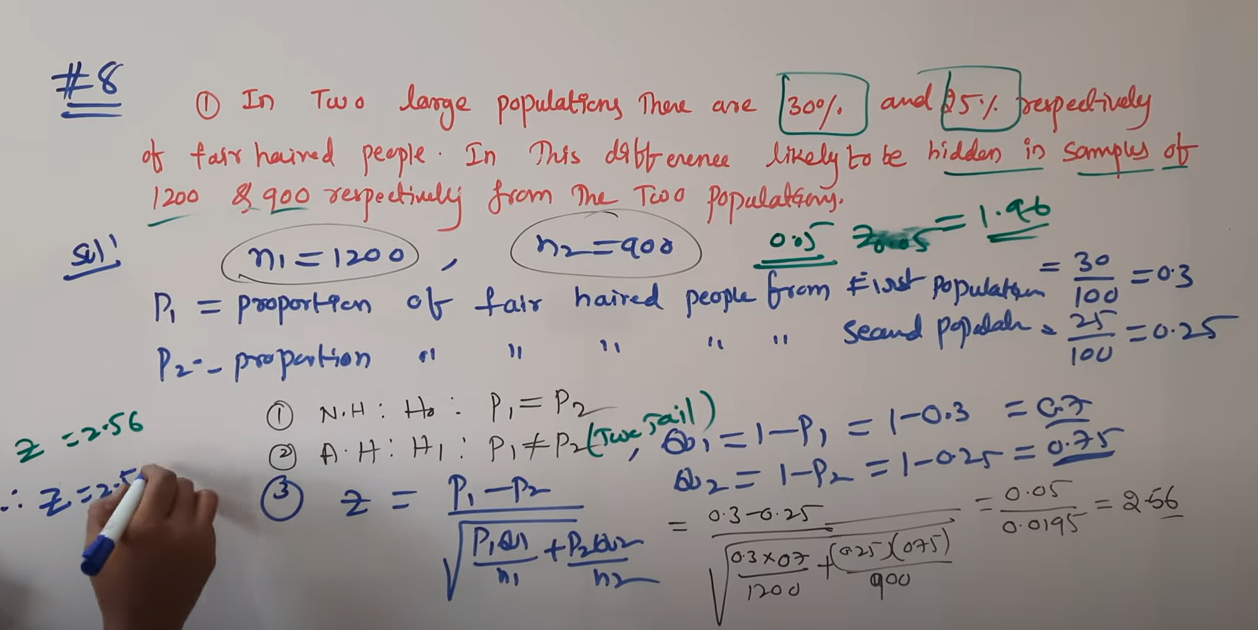 #8
① In Two large populations There are 30% and 25% respectively
of fair haired people. In This difference likely to be hidden in samples of
1200 & 900 respectively from The Two populations.
Sol:
n1 = 1200 , n2 = 900 0.05 = 1.96
P1 = proportion of fair haired people from First population = 30/100 = 0.3
P2 = proportion " " " " " second populatn = 25/100 = 0.25
① N.H : H0 : P1 = P2
② A.H : H1 : P1 ≠ P2 (Two Tail) , Q1 = 1-P1 = 1-0.3 = 0.7
Q2 = 1-P2 = 1-0.25 = 0.75
③ Z = P1-P2 / √(P1Q1/n1 + P2Q2/n2) = 0.3-0.25 / √(0.3×0.7/1200 + (0.25)(0.75)/900) = 0.05/0.0195 = 2.56
Z = 2.56
∴ Z = 2.5